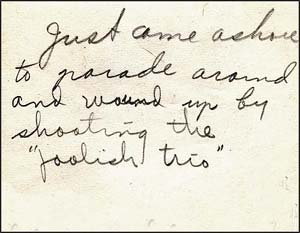 Just came ashore
to parade around
and wound up by
shooting the
"foolish trio"